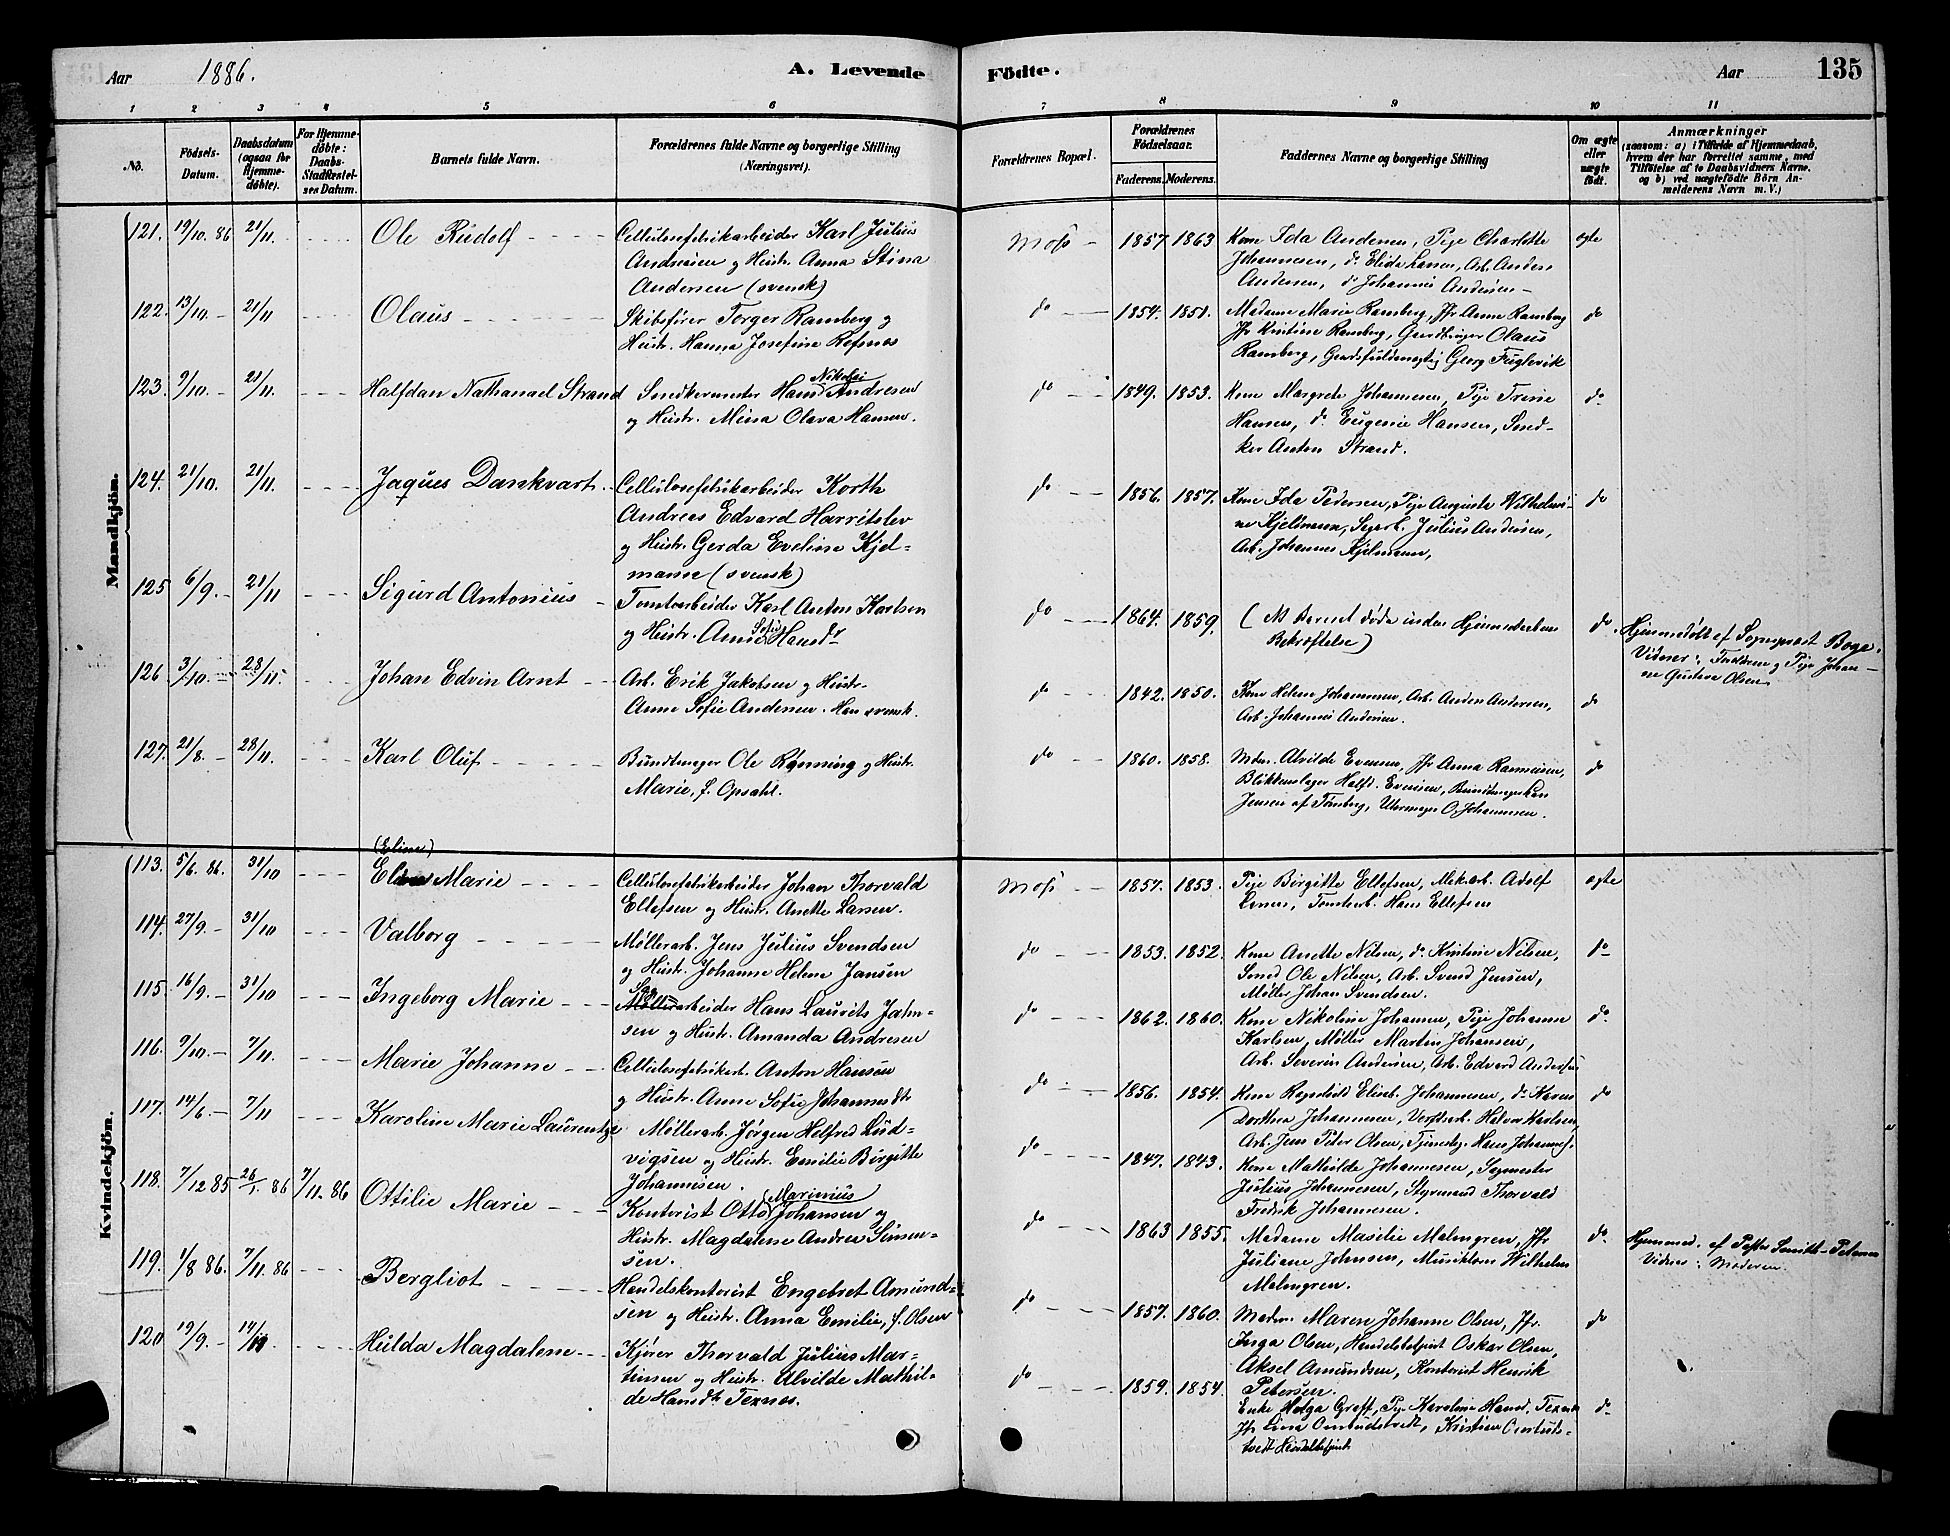 Aar 1886. A. Levende
1 2 3 4 5 6
No. Fødsels-Datum. Daabsdatum (ogsaa for Hjemmedøbte). For Hjemmedøbte: Daabs-Stadfæstelses Datum. Barnets fulde Navn. Forældrenes fulde Navne og borgerlige Stilling (Næringsvei).
Mandkjøn.
121. 19/10. 86 21/11. Ole Rudolf Cellulosefabrikarbeider Karl Julius
Andresen og Hustr. Anna Stina
Andersen (svensk)
122. 13/10. - 21/11 Olaus Skibsfører Torger Ramberg og
Hustr. Hanna Josefine Refsnes
123. 9/10. - 21/11. Halfdan Nathanael Strand Snedkermester Hans Nikolai Andresen
og Hustr. Mina Olava Hansen.
124. 21/10. 21/11. Jaques Dankvart. Cellulosefabrikarbeider Korth
Andreas Edvard Harritslev
og Hustr. Gerda Eveline Kjel-
mann (svensk)
125 6/9. - 21/11 Sigurd Antonius Tomtearbeider Karl Anton Karlsen
og Hustr. Anne Sofie Hansdr
126. 3/10. - 28/11. Johan Edvin Arnt Arb. Erik Jakobsen og Hustr.
Anne Sofie Andersen. Han svensk.
127. 21/8. - 28/11. Karl Oluf Bundtmager Ole Rønning og Hustr.
Marie, f. Opsahl.
Kvindekjön.
(Eline)
113. 5/6. 86. 31/10 Marie Cellulosefabrikarbeider Johan Thorvald
Ellefsen og Hustr. Anette Larsen.
114. 27/9. - 31/10 Valborg Møllerarb. Jens Julius Svendsen
og Hustr. Johanne Helene Jansen
115. 16/9. - 31/10 Ingeborg Marie Sag Møllerarbeider Hans Laurits Jahn-
sen og Hustr. Amanda Andresen
116. 9/10. - 7/11. Marie Johanne Cellulosefabrikarb. Anton Hansen
og Hustr. Anne Sofie Johannesdt
117. 14/6. - 7/11 Karoline Marie Laurentze Møllerarb. Jørgen Helfred Lud-
vigsen og Hustr. Emilie Birgitte
Johannesen.
118. 7/12 85 26/1. 86 7/11. 86 Ottilie Marie Kontorist Otto Marinius Johansen og
Hustr. Magdalene Andrea Simen-
sen.
119. 1/8 86. 7/11. 86 Bergliot Handelskontorist Engebret Amund-
sen og Hustr. Anna Emilie, f. Olsen
120 19/9. - 14/11 Hulda Magdalene Kjører Thorvald Julius Mar-
tinsen og Hustr. Alvilde Mathil-
de Hansdt. Texnes.
Födte. Aar 135
7 8 9 10 11
Forældrenes Bopæl. Forældrenes Födselsaar. Faderens. Moderens. Faddernes Navne og borgerlige Stilling Om ægte eller uægte født. Anmærkninger (saasom: a) i Tilfælde af Hjemmedaab, hvem der har forrettet samme, med Tilføielse af to Daabsvidners Navne, og b) ved uægtefødte Børn Anmelderens Navn m. V.)
Moss 1857. 1863 Kone Ida Andersen, Pige Charlotte ægte
Johannesen, do Elida Larsen, Arb. Anders
Andersen, do Johannes Andersen
do 1854. 1851. Madame Marie Ramberg, Jfr Anne Ramberg do
Jfr Kristine Ramberg, Olaus
Ramberg, Georg Fuglevik
do 1849. 1853. Kone Margrete Johannesen, Pige Trine do
Hansen, do Eugenie Hansen, Sned-
ker Anton Strand.
do 1856. 1857. Kone Ida Pedersen, Pige Auguste Vilhelmi- do
ne Kjelmann, Julius Andersen,
Arb. Johannes Kjelmann,
do 1864. 1859. (NB Barnet døde inden Hjemmedaabens do. Hjemmedøbt af Sogneprest Boge.
Bekræftelse) Vidner: Faderen og Pige Johan-
ne Gustava Olsen
do 1842. 1850. Kone Helene Johannesen, Arb. Anders Andersen, do
Arb. Johannes Andersen.
do 1860. 1858. Madm. Alvilde Evensen, Jfr Anna Rasmussen, do
Blikkenslager Halfd. Evensen,
Jensen af Tønsberg, Uhrmager O. Johannesen.
Moss 1857. 1853. Pige Birgitte Ellefsen, Mek.arb. Adolf ægte
Larsen, Tomtearb. Hans Ellefsen
do 1853. 1852. Kone Anette Nilsen, do Kristine Nilsen, do
Smed Ole Nilsen, Arb. Svend Jensen,
Møller Johan Svendsen.
do 1862. 1860. Kone Nikoline Johannesen, Pige Johanne do.
Karlsen, Møller Martin Johansen,
Arb. Severin Andersen, Arb. Edvard Andersen
do 1856. 1854. Kone Ragnhild Eliseb. Johannesen, do Karen do
Dorthea Johannesen, Verftsarb. Halvor Karlsen,
Arb. Jens Peter Olsen, Tjenesteg. Hans Johannes.
do 1847. 1843. Kone Mathilde Johannesen, Sagmester
Julius Johannesen, Styrmand Thorvald
Fredrik Johannesen.
do 1863 1855. Madame Masilie Malmgren, Jfr do. Hjemmed. af Pester Smith-Petersen
Juliane Johnsen, Musiklærer Wilhelm Vidner: Moderen.
Malmgren.
do 1857. 1860. Madm. Maren Johanne Olsen, Jfr. do
Inga Olsen, Handelsbetjent Oskar Olsen,
Aksel Amundsen, Kontorist Henrik
Petersen.
do 1859. 1854. Enke Helga Graff, Pige Karoline Hansd. Texnes do
Jfr Lina Ombudstvedt, Kristian Ombuds-
tvedt Handelsbetjent